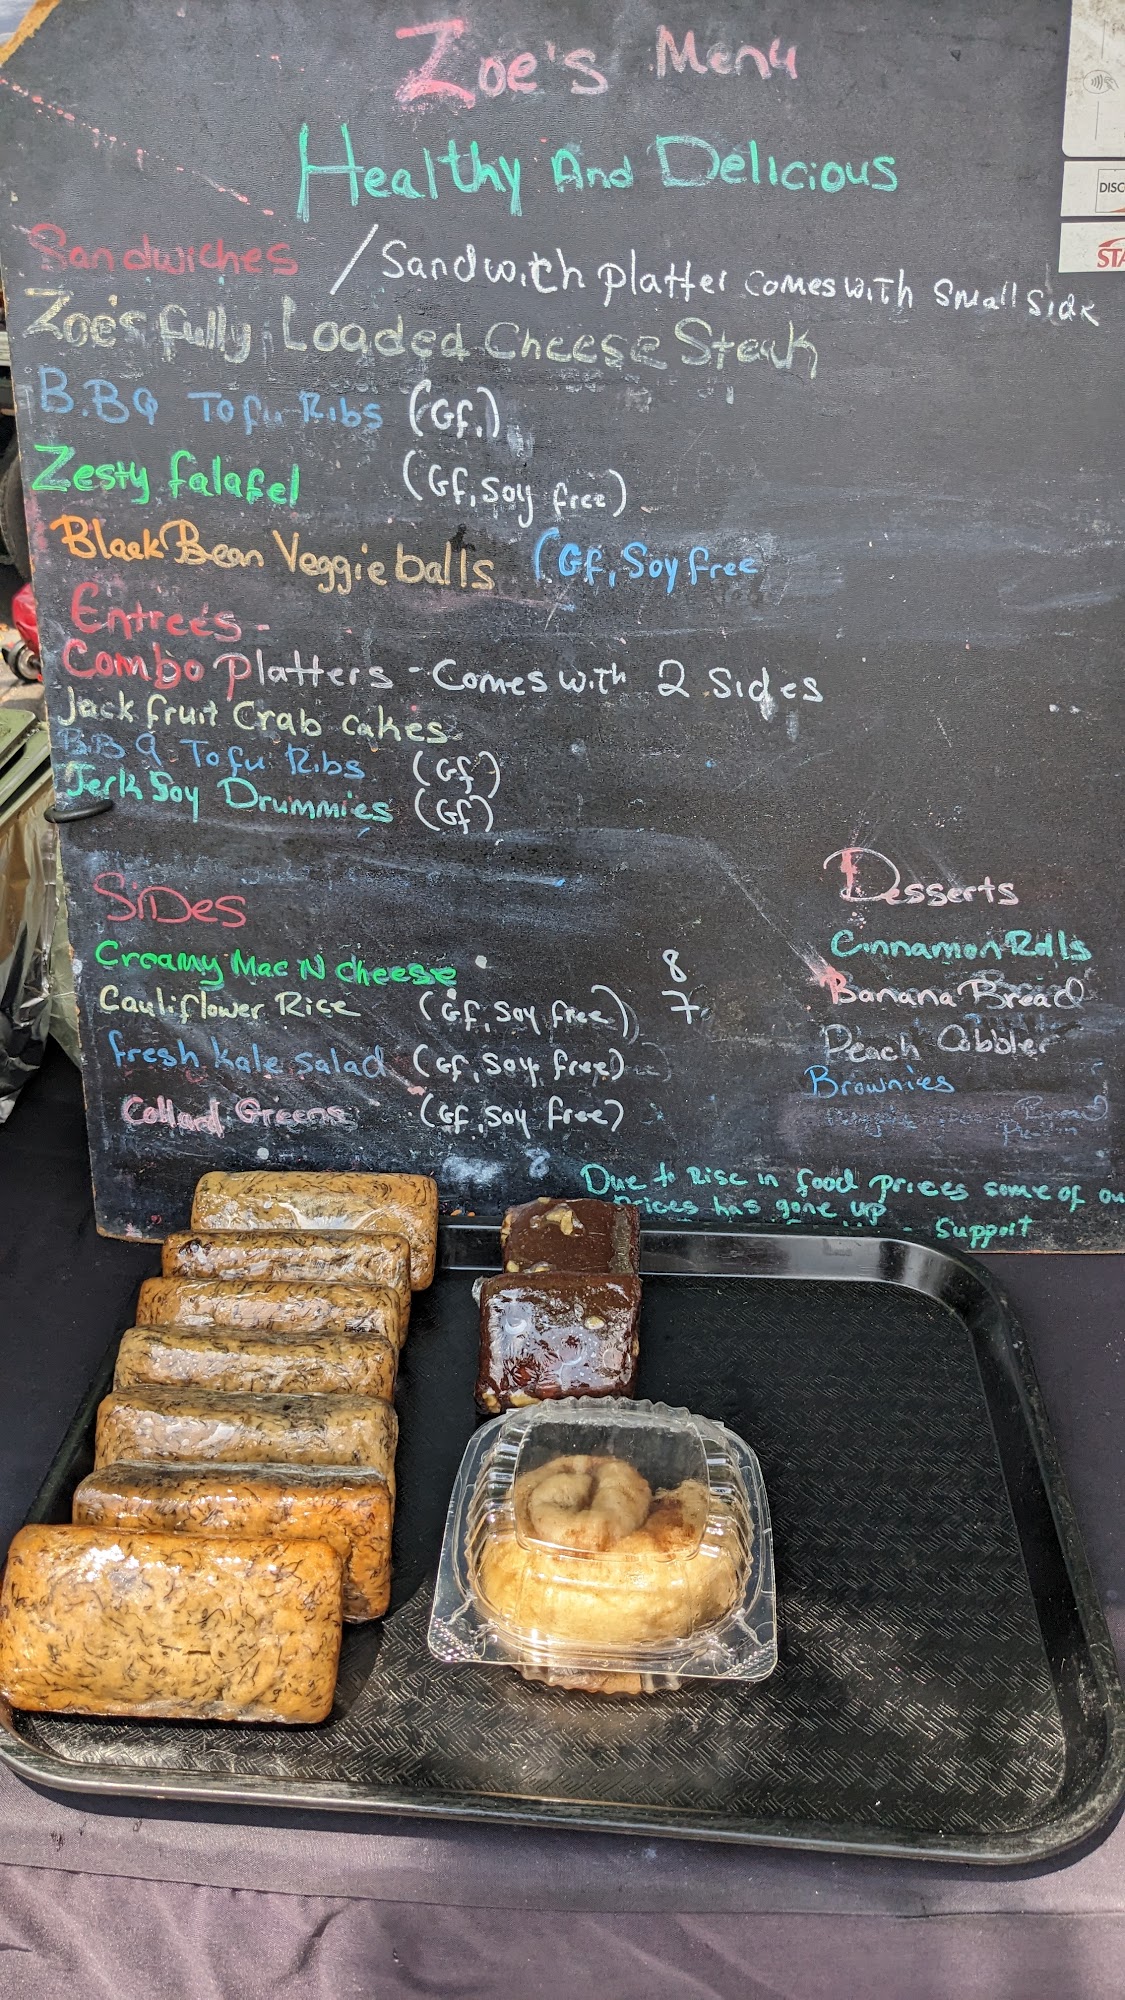 Zoe's Menu
Healthy And Delicious
Sandwiches / Sandwitch platter comes with Small Side
Zoe's fully Loaded Cheese Steak
B.BQ Tofu Ribs (Gf.)
Zesty falafel (Gf, Soy free)
Black Bean Veggie balls (Gf, Soy free
Entreés -
Combo Platters - Comes with 2 Sides
Jack fruit Crab cakes
B.B Q Tofu Ribs (Gf)
Jerk Soy Drummies (Gf)
SiDes
Creamy Mac N cheese 8
Cauliflower Rice (Gf, Soy free) 7
fresh kale salad (Gf, Soy free)
Collard Greens (Gf, Soy free)
8
Desserts
Cinnamon Rolls
Banana Bread
Peach Cobbler
Brownies
Due to Rise in food prices some of ou
Prices has gone up
- Support
DISC
STA